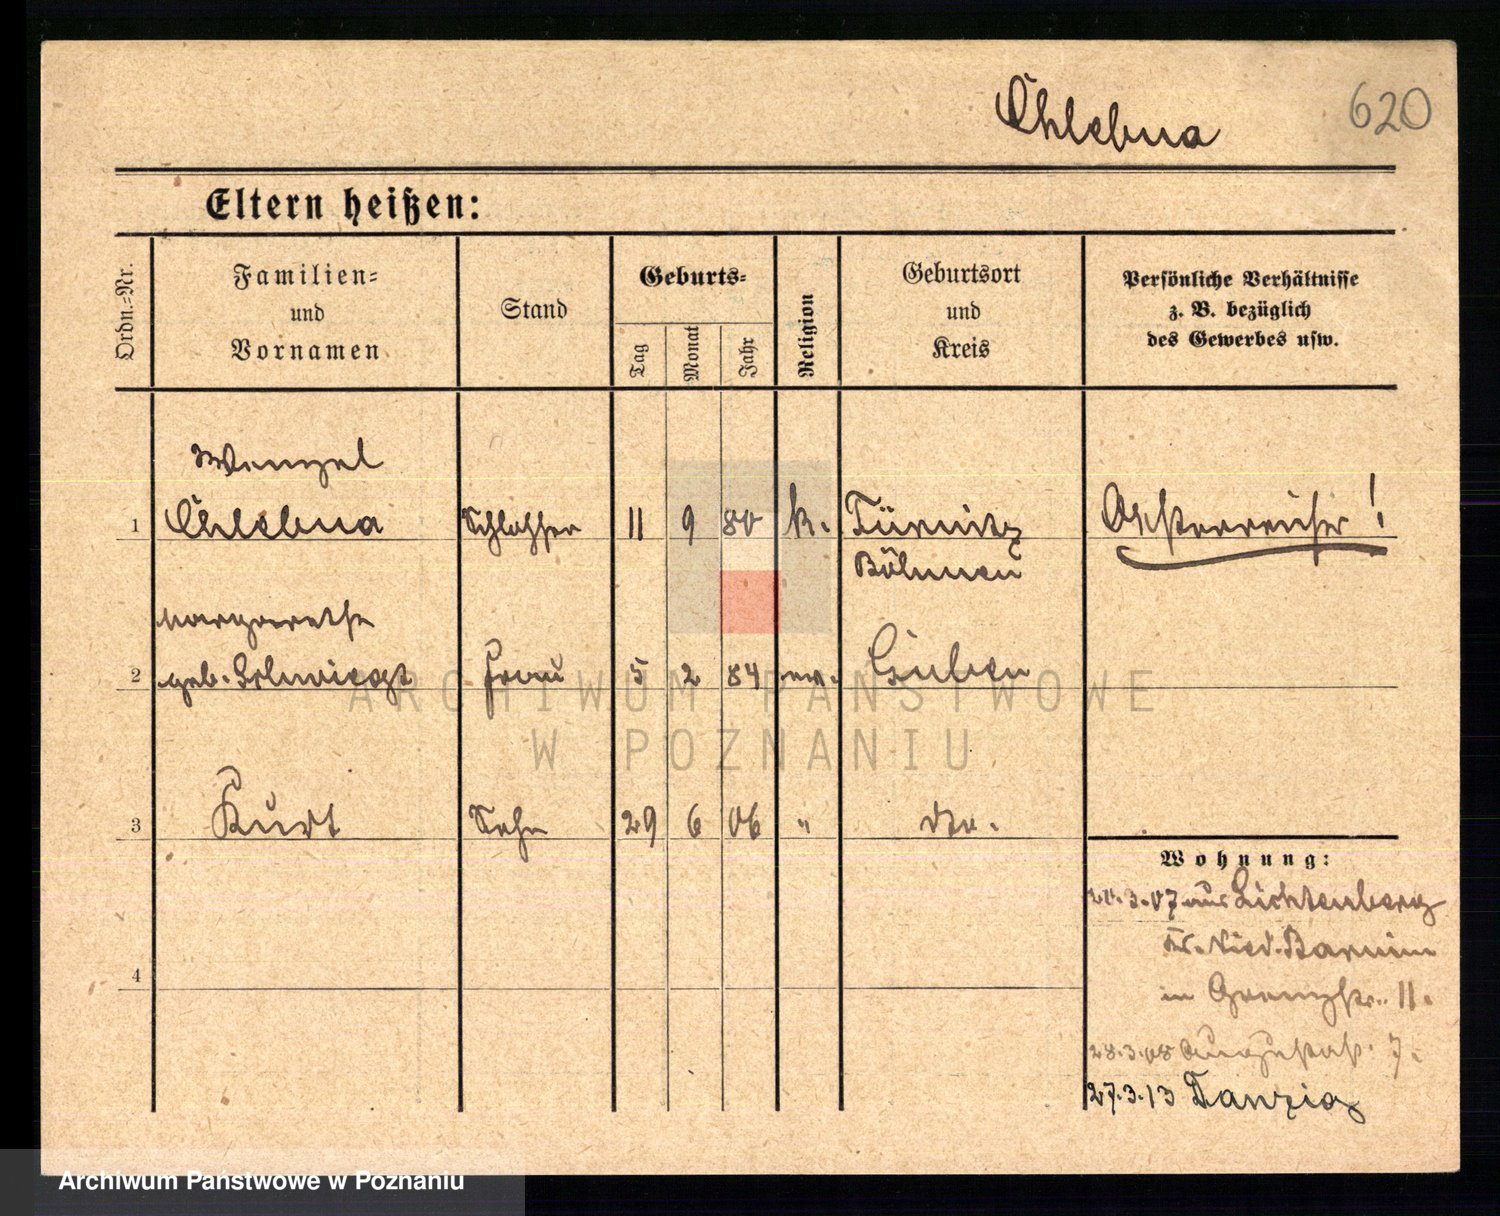 Chlebna
620
Eltern heißen:
Ordn.=Nr.
Familien=
und
Vornamen
Stand
Geburts=
Tag
Monat
Jahr
Religion
Geburtsort
und
Kreis
Persönliche Verhältnisse
z. B. bezüglich
des Gewerbes usw.
Wenzel
1 Chlebna Schlosser 11 9 80 k. Türmitz Oesterreicher!
Böhmen
Margarethe
2 geb. Frau 5 2 84 ev. Guben
3 Kurt Sohn 29 6 06 " do.
Wohnung:
20.3.07 aus Lichtenberg
Kr. Nied. Barnim
4
in Grenzstr. 11.
28.3.08 7.
27.3.13 Danzig
ARCHIWUM PAŃSTWOWE
W POZNANIU
Archiwum Państwowe w Poznaniu